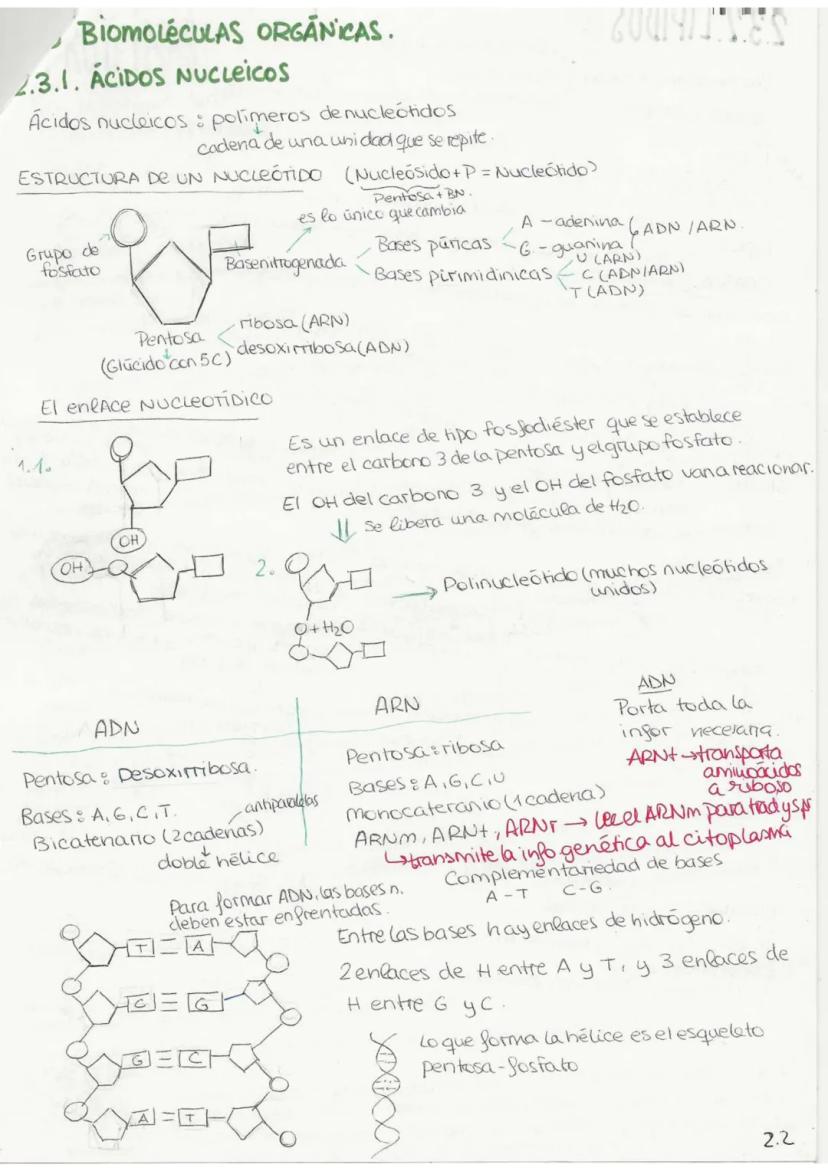 BIOMOLÉCULAS ORGÁNICAS.
2.3.1. ÁCIDOS NUCLEICOS
Ácidos nucleicos : polímeros de nucleótidos
cadena de una unidad que se repite.
ESTRUCTURA DE UN NUCLEÓTIDO (Nucleósido + P = Nucleótido)
Pentosa + BN.
es lo único que cambia
Grupo de
fosfato
Base nitrogenada
Bases púricas
A - adenina
G - guanina
ADN / ARN.
Bases pirimidínicas
U (ARN)
C (ADN/ARN)
T (ADN)
Pentosa
ribosa (ARN)
desoxirribosa (ADN)
(Glúcido con 5C)
El enlACE NUCLEOTÍDICO
1.1.
OH
OH
Es un enlace de tipo fosfodiéster que se establece
entre el carbono 3 de la pentosa y el grupo fosfato.
El OH del carbono 3 y el OH del fosfato van a reaccionar.
Se libera una molécula de H2O.
2.
O + H2O
Polinucleótido (muchos nucleótidos
unidos)
ADN
Pentosa : Desoxirribosa.
Bases : A, G, C, T.
antiparalelas
Bicatenario (2 cadenas)
doble hélice
ARN
Pentosa : ribosa
Bases : A, G, C, U
Monocatenario (1 cadena)
ARNm, ARNt, ARNr → lee el ARNm para trad y
↳ transmite la info genética al citoplasma
ADN
Porta toda la
infor necesaria.
ARNt → transporta
aminoácidos
a
Complementariedad de bases
A - T C - G.
Para formar ADN, las bases n.
deben estar enfrentadas.
T = A
C ≡ G
G ≡ C
A = T
Entre las bases hay enlaces de hidrógeno.
2 enlaces de H entre A y T, y 3 enlaces de
H entre G y C.
Lo que forma la hélice es el esqueleto
pentosa-fosfato
2.2